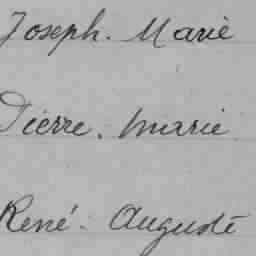 Joseph. Marie
Pierre. Marie
René. Auguste